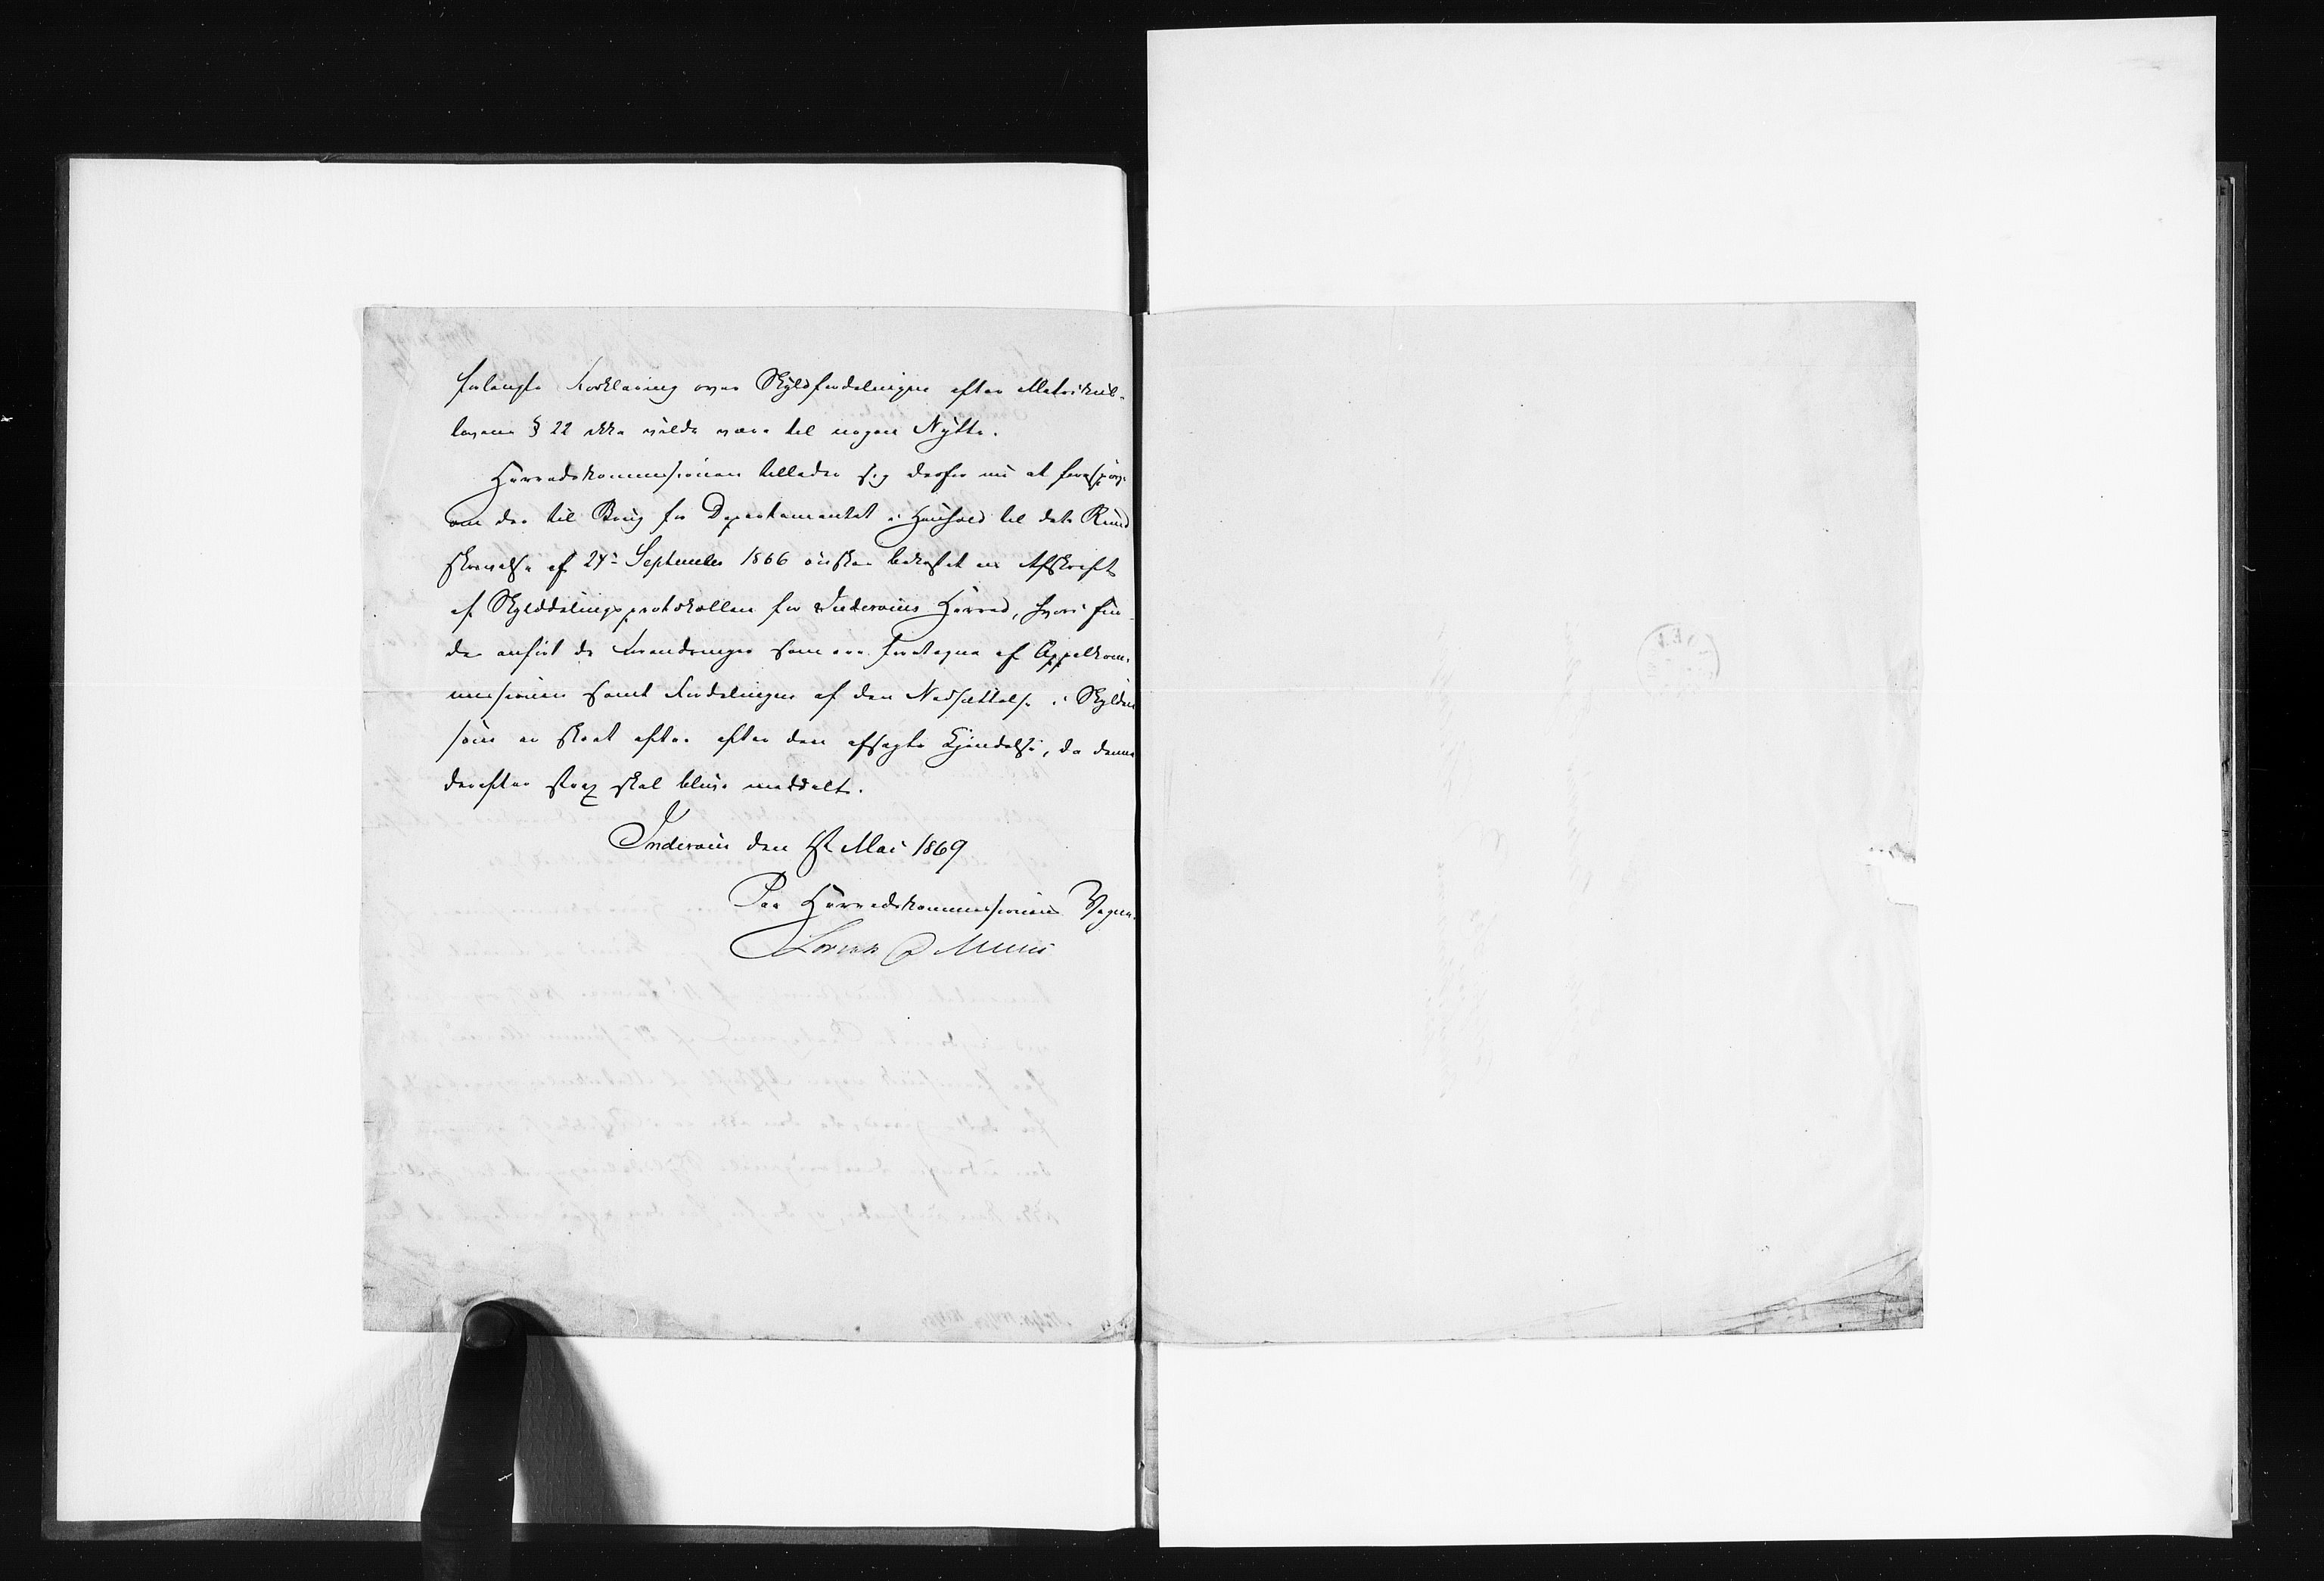 forlangte Forklaring over Skyldfordelingen efter Matrikul-
lovens § 22 ikke vilde være til nogen Nytte.
Herredskommissionen tillader sig derfor nu at forespørge
om der til Brug for Departementet i Henhold til dets Rund
skrivelse af 24de September 1866 ønskes bekostet en Afskrift
af Skylddelingsprotokollen for Inderøens Herred, hvori fin-
des anført de Forandringer som ere foretagne af Appelkom-
missionen samt Fordelingen af den Nedsættelse i Skylden
som er skeet efter efter den afsagte Kjendelse, da denne
derefter strax skal blive meddelt.
Inderøen den Mai 1869
Paa Herredskommissionens Vegne.
Lorents Muus